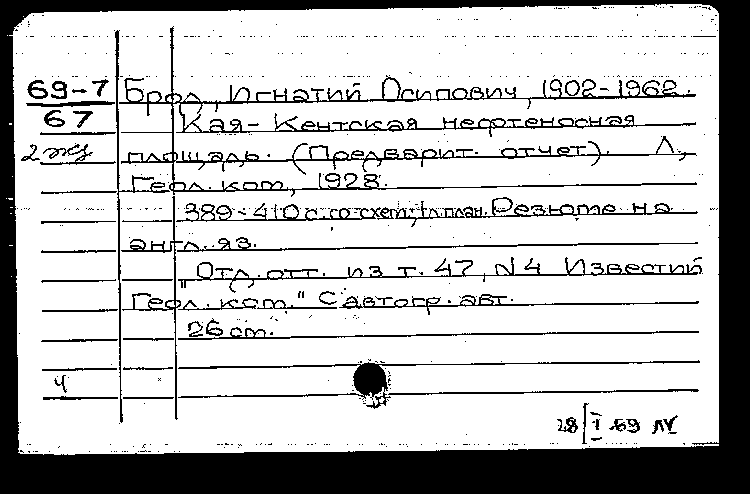 69-7 Брод, Игнатий Осипович, 1902-1962.
67 Кая-Кентская нефтеносная
2 жз площадь. (Предварит. отчет). Л.,
Геол. ком., 1928.
389-410 с. со схем; 1 л. план. Резюме на
англ. яз.
"Отд. отт. из т. 47, N 4 Известий
Геол. ком." С автогр. авт.
26 см.
ч
28 I 69